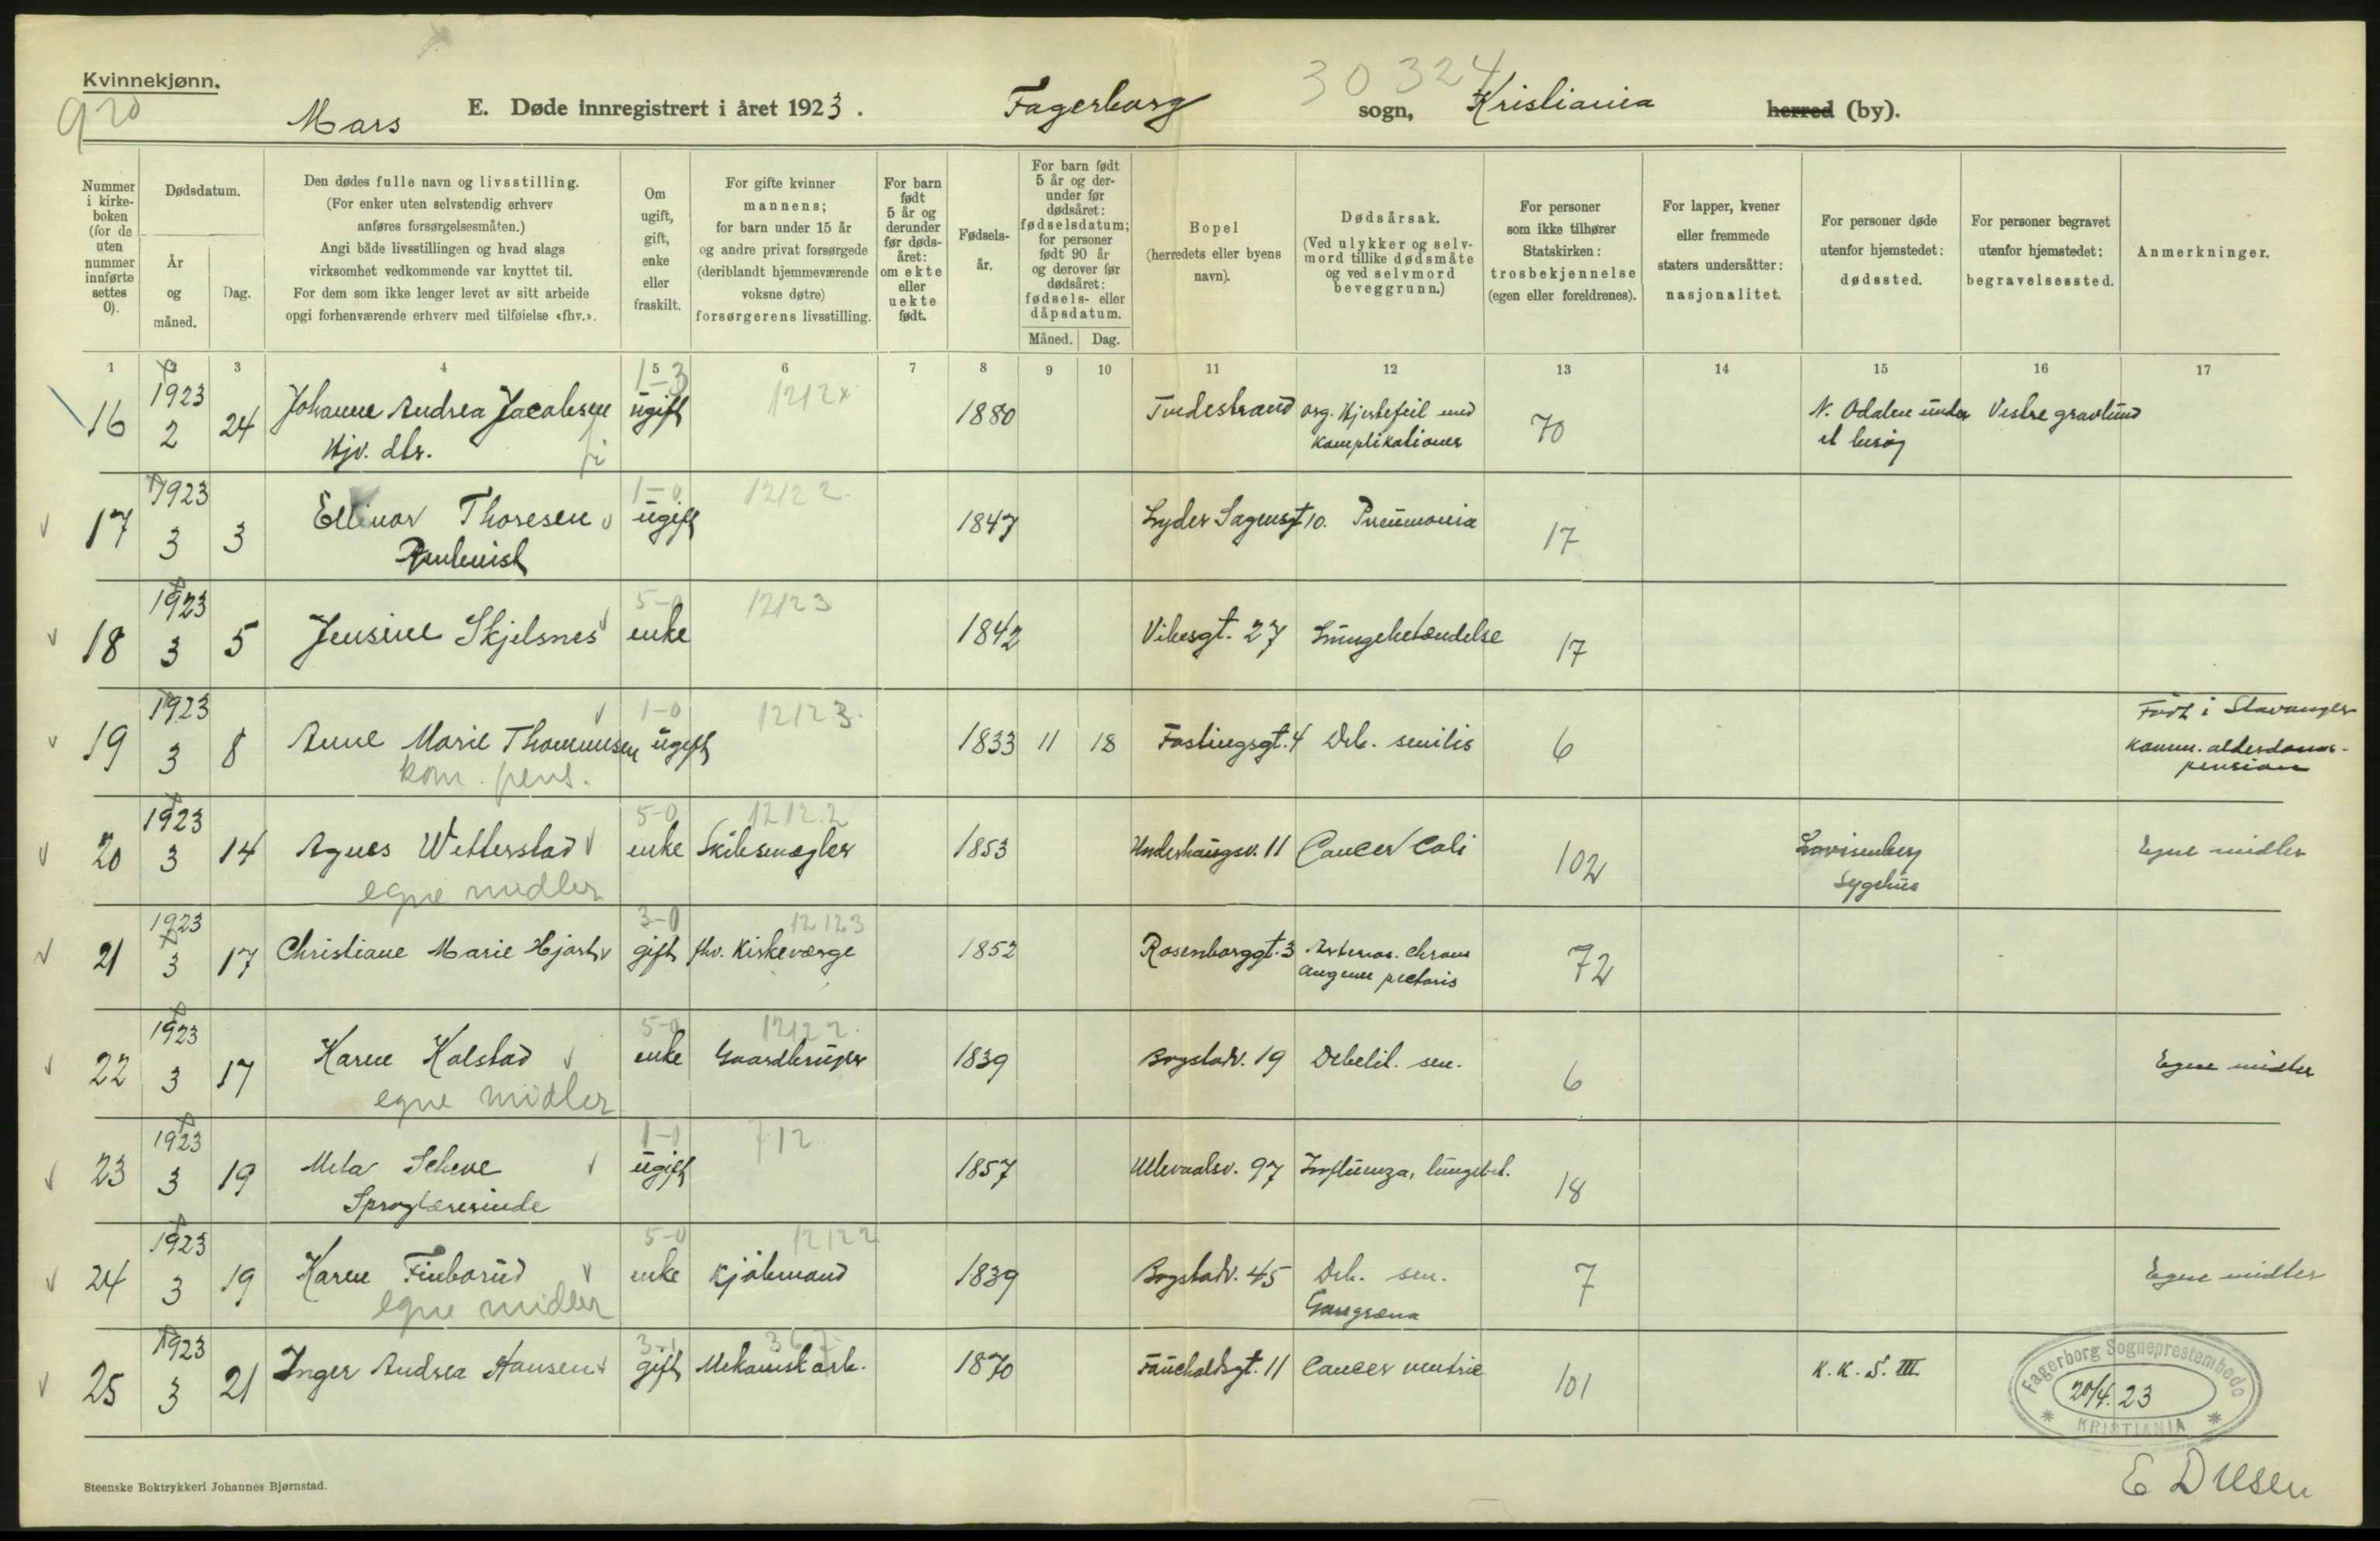 Kvinnekjønn.
920
Mars
E. Døde innregistrert i året 1923.
Fagerborg sogn,
30 324
Kristiania herred (by).
Nummer i kirke-boken (for de uten nummer innførte settes 0).
Dødsdatum.
År og måned.
Dag.
Den dødes fulle navn og livsstilling.
(For enker uten selvstendig erhverv
anføres forsørgelsesmåten.)
Angi både livsstillingen og hvad slags
virksomhet vedkommende var knyttet til.
For dem som ikke lenger levet av sitt arbeide
opgi forhenværende erhverv med tilføielse «fhv.».
Om ugift, gift, enke eller fraskilt.
For gifte kvinner
mannens;
for barn under 15 år
og andre privat forsørgede
(deriblandt hjemmeværende
voksne døtre)
forsørgerens livsstilling.
For barn født 5 år og derunder før døds-året: om ekte eller uekte født.
Fødsels-år.
For barn født 5 år og der-under før dødsåret: fødselsdatum; for personer født 90 år og derover før dødsåret: fødsels- eller dåpsdatum.
Måned. Dag.
Bopel
(herredets eller byens navn).
Dødsårsak.
(Ved ulykker og selv-mord tillike dødsmåte og ved selvmord beveggrunn.)
For personer som ikke tilhører Statskirken: trosbekjennelse (egen eller foreldrenes).
For lapper, kvener eller fremmede staters undersåtter: nasjonalitet.
For personer døde utenfor hjemstedet: dødssted.
For personer begravet utenfor hjemstedet: begravelsessted.
Anmerkninger.
1 2 3 4 5 6 7 8 9 10 11 12 13 14 15 16 17
16 1923 2 24 Johanne Andrea Jacobsen ugift 1-3 1212x 1880 Tvedestrand org. Hjertefeil med 70 N. Odalen under Vestre gravlund
Hjv. dtr. komplikationer et besøg
17 1923 3 3 Ellinor Thoresen ugift 1-0 12122 1847 Lyder Sagensgt 10. Pneumonia 17
Rentenist
18 1923 3 5 Jensine Skjelsnes enke 5-0 12123 1842 Vibesgt. 27 Lungebetændelse 17
19 1923 3 8 Anne Marie Thommesen ugift 1-0 12123 1833 11 18 Fastingsgt. 4 Deb. senilis 6 Født i Stavanger
kom. pens. komm. alderdoms-
pension
20 1923 3 14 Agnes Wetterstad enke 5-0 Skibsmægler 12122 1853 Underhaugsv. 11 Cancer Coli 102 Lovisenberg Egne midler
egne midler Sygehus
21 1923 3 17 Christiane Marie Hjorth gift 3-0 fhv. Kirkeværge 12123 1852 Rosenborggt. 3 72
pectoris
22 1923 3 17 Karen Kolstad enke 5-0 Gaardbruger 12122 1839 Bogstadv. 19 Debilit. sen. 6 Egne midler
egne midler
23 1923 3 19 Meta ugift 1-0 712 1857 Ullevaalsv. 97 Influenza, lungebet. 18
Sproglærerinde
24 1923 3 19 Karen Finborud enke 5-0 Kjøbmand 12122 1839 Bogstadv. 45 Deb. sen. 7 Egne midler
egne midler Gangræna
25 1923 3 21 Inger Andrea Hansen gift 3-1 Mekanisk arb. 367 1870 Fauchaldsgt. 11 Cancer ventric 101 K. K. S. III
Fagerborg Sogneprestembede
20/4. 23
KRISTIANIA
Steenske Boktrykkeri Johannes Bjørnstad.